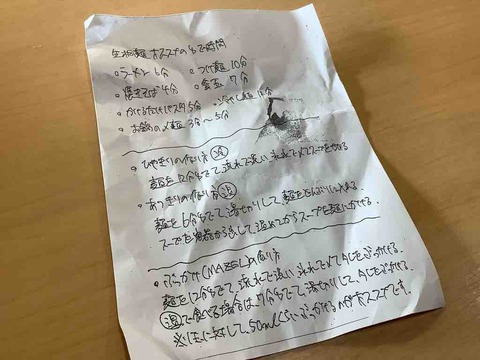 生桐麺 オススメのゆで時間
・ラーメン 6分 ・つけ麺 10分
・焼きそば 4分 ・釜玉 7分
・かけるだけパスタ 5分 ・冷やし麺
・お鍋の〆麺 3分〜5分
・ひやきりの作り方 冷
麺を12分ゆでて、流水で洗い、氷水で〆てスープをかける
・あつきりの作り方 温
麺を6分ゆでて、湯切りして、麺をどんぶりに入れる。
スープを容器から出して温めてからスープを麺にかける。
・ぶっかけ(MAZEL)の作り方
麺を12分ゆでて、流水で洗い、氷水で〆てタレをぶっかける。
温で食べる場合は7分ゆでて、湯切りして、タレをぶっかける。
※1玉に対して、50mlくらいぶっかけるのがオススメです。